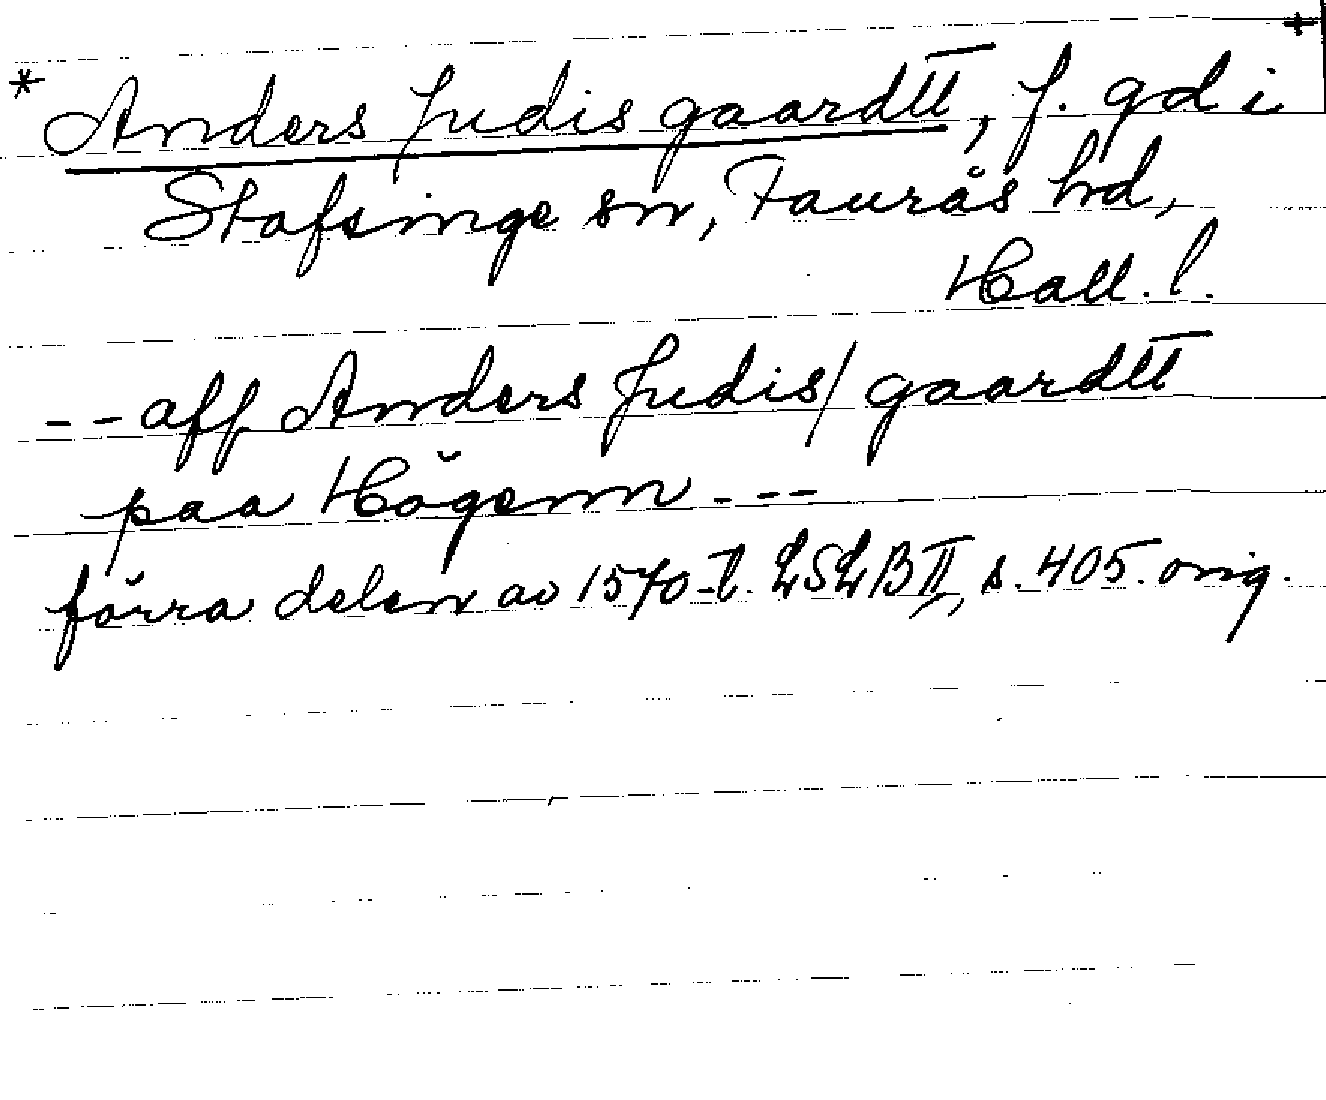 * Anders Judis gaardtt̅, f. gd i
Stafsinge sn, Faurås hd,
Hall. l.
-- aff Anders Judis/ gaardtt̅
paa Högenn ---
förra delen av 1570-t. LSLB II, s. 405. orig.